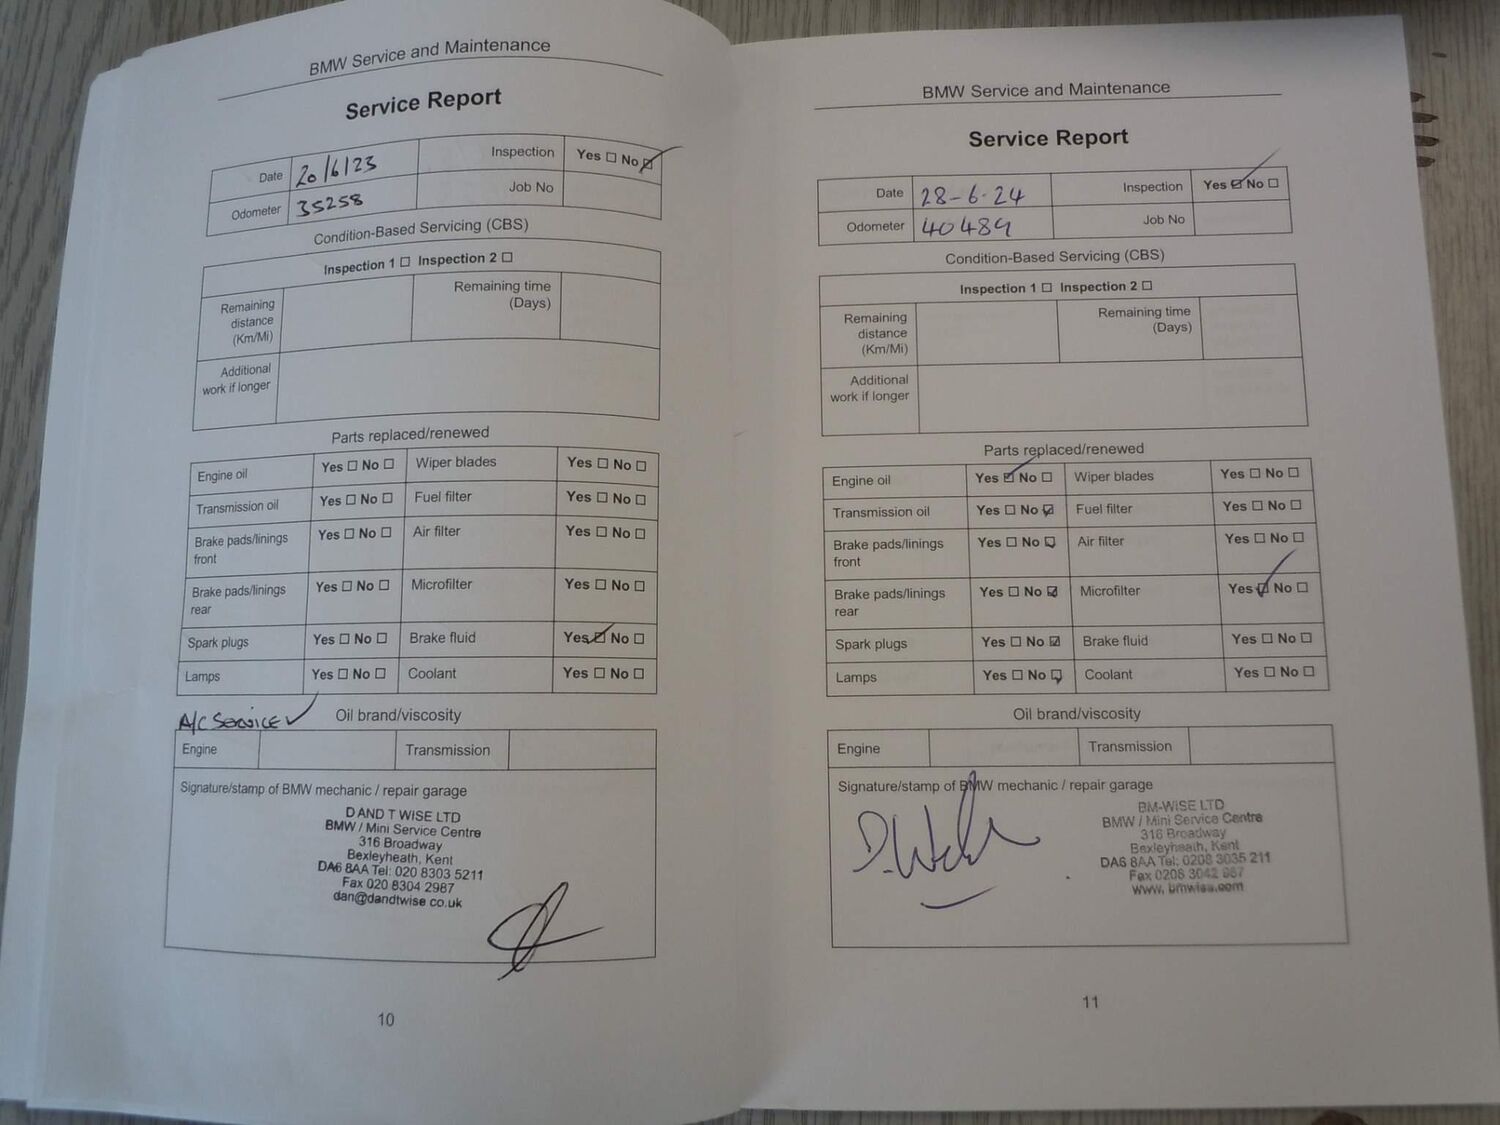 BMW Service and Maintenance
Service Report
Date 20/6/23 Inspection Yes ☐ No ☑
Odometer 35258 Job No
Condition-Based Servicing (CBS)
Inspection 1 ☐ Inspection 2 ☐
Remaining distance (Km/Mi) Remaining time (Days)
Additional work if longer
Parts replaced/renewed
Engine oil Yes ☐ No ☐ Wiper blades Yes ☐ No ☐
Transmission oil Yes ☐ No ☐ Fuel filter Yes ☐ No ☐
Brake pads/linings front Yes ☐ No ☐ Air filter Yes ☐ No ☐
Brake pads/linings rear Yes ☐ No ☐ Microfilter Yes ☐ No ☐
Spark plugs Yes ☐ No ☐ Brake fluid Yes ☑ No ☐
Lamps Yes ☐ No ☐ Coolant Yes ☐ No ☐
A/C Service ✓ Oil brand/viscosity
Engine Transmission
Signature/stamp of BMW mechanic / repair garage
D AND T WISE LTD
BMW / Mini Service Centre
316 Broadway
Bexleyheath, Kent
DA6 8AA Tel: 020 8303 5211
Fax 020 8304 2987
dan@dandtwise.co.uk
10
BMW Service and Maintenance
Service Report
Date 28-6-24 Inspection Yes ☑ No ☐
Odometer 40489 Job No
Condition-Based Servicing (CBS)
Inspection 1 ☐ Inspection 2 ☐
Remaining distance (Km/Mi) Remaining time (Days)
Additional work if longer
Parts replaced/renewed
Engine oil Yes ☑ No ☐ Wiper blades Yes ☐ No ☐
Transmission oil Yes ☐ No ☑ Fuel filter Yes ☐ No ☐
Brake pads/linings front Yes ☐ No ☑ Air filter Yes ☐ No ☐
Brake pads/linings rear Yes ☐ No ☑ Microfilter Yes ☑ No ☐
Spark plugs Yes ☐ No ☑ Brake fluid Yes ☐ No ☐
Lamps Yes ☐ No ☑ Coolant Yes ☐ No ☐
Oil brand/viscosity
Engine Transmission
Signature/stamp of BMW mechanic / repair garage
BM-WISE LTD
BMW / Mini Service Centre
316 Broadway
Bexleyheath, Kent
DA6 8AA Tel: 0208 3035 211
Fax 0208 3042 987
www. bmwise.com
11